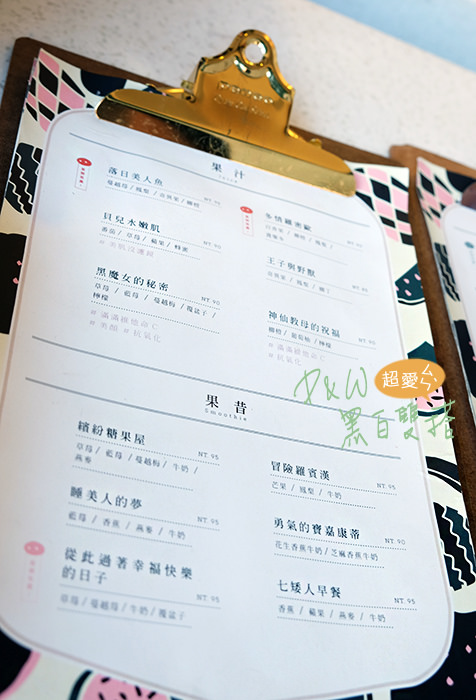 果汁
Juice
落日美人魚 NT. 95
蔓越莓 / 鳳梨 / 百香果 / 柳橙
貝兒水嫩肌
番茄 / 草莓 / 蘋果 / 蜂蜜
# 美肌沒濾鏡
黑魔女的秘密 NT. 90
草莓 / 藍莓 / 蔓越梅 / 覆盆子 /
檸檬
# 滿滿維他命C
# 美顏 # 抗氧化
多情羅密歐
王子與野獸
神仙教母的祝福 NT. 90
柳橙 / 葡萄柚 / 檸檬
# 滿滿維他命C
# 抗氧化
果昔
Smoothie
繽紛糖果屋 NT. 95
草莓 / 藍莓 / 蔓越梅 / 牛奶 /
燕麥
睡美人的夢 NT. 95
藍莓 / 香蕉 / 燕麥 / 牛奶
從此過著幸福快樂
的日子 NT. 95
草莓 / 蔓越莓 / 牛奶 / 覆盆子
冒險羅賓漢 NT. 95
芒果 / 鳳梨 / 牛奶
勇氣的寶嘉康蒂 NT. 90
花生香蕉牛奶 / 芝麻香蕉牛奶
七矮人早餐 NT. 95
香蕉 / 蘋果 / 燕麥 / 牛奶
P&W
超愛ㄙㄙ
黑白雙搭